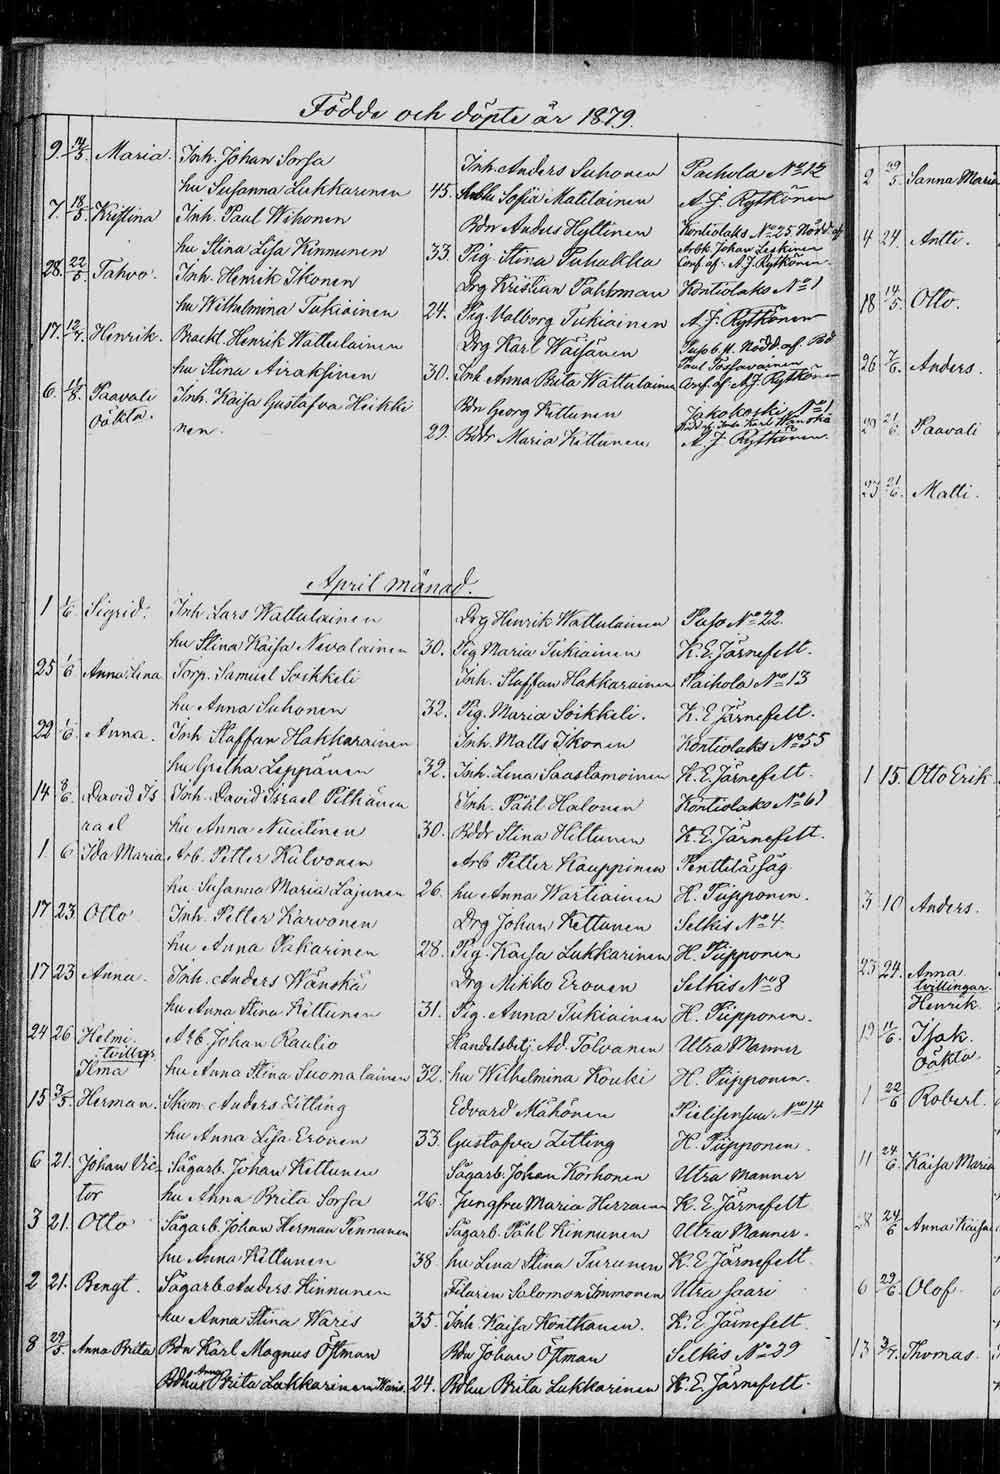 Födde och döpte år 1879.
9. 14/5. Maria. Inh. Johan Sorsa Inh. Anders Suhonen Paihola No 12
hu Susanna Lukkarinen 45. Sofia Matilainen A. J. Rytkönen
7. 18/5. Kristina Inh. Paul Wihonen Bdn Anders Hyttinen Kontiolaks No 25 Nödd. af
hu Stina Lisa Kinnunen 33. Pig. Stina Puhakka Arbk Johan Leskinen
Conf. af. A. J. Rytkönen.
28. 22/5. Tahvo. Inh. Henrik Ikonen Drg Kristian Pahlman Kontiolaks No 1
hu Wilhelmina Tukiainen 24. Pig. Valborg Tukiainen A. J. Rytkönen
17. 12/7. Henrik. Brackl. Henrik Wattulainen Drg Karl Wäisänen Nödd. af
hu Stina Airaksinen 30. Inh. Anna Brita Wattulainen Paul
Conf. af A. J. Rytkönen
6. 11/8. Paavali Inh. Kaisa Gustafva Heikki Bdn Georg Kettunen Jakokoski No 1.
oäkta. nen. 29. Bdr Maria Kettunen Nödd af Inh. Karl Wänskä
A. J. Rytkönen.
April månad.
1 1/6 Sigrid. Inh. Lars Wattulainen Drg Henrik Wattulainen Puso No 22.
hu Stina Kaisa Nevalainen 30. Pig Maria Tukiainen K. E. Järnefelt.
25 1/6 Anna Lena Torp. Samuel Soikkeli Inh. Staffan Hakkarainen Paihola No 13
hu Anna Suhonen 32. Pig. Maria Soikkeli. K. E. Järnefelt.
22 1/6. Anna. Inh Staffan Hakkarainen Inh. Matts Ikonen Kontiolaks No 55
hu Gretha Leppänen 32. Inh. Lena Saastamoinen K. E. Järnefelt.
14 8/6. David Is Inh. David Israel Pelkänen Inh. Påhl Halonen Kontiolaks No 61
rael hu Anna Nuutinen 30. Bdr Stina Hiltunen K. E. Järnefelt.
1. 6 Ida Maria Arb. Petter Kulvonen Arb Petter Kauppinen Penttilä såg.
hu Susanna Maria Lajunen 26. hu Anna Wartiainen H. Piipponen.
17 23. Otto Inh. Petter Karvonen Drg Johan Kettunen Selkis No 4.
hu Anna Pakarinen 28. Pig. Kaisa Lukkarinen H. Piipponen
17 23 Anna. Inh. Anders Wänskä Drg Mikko Eronen Selkis No 8
hu Anna Stina Kettunen 31. Pig. Anna Tukiainen H. Piipponen.
24 26 Helmi Arb. Johan Raulio Handelsbetj. Ad. Tolvanen Utra Manner
tvillgr
Ilma hu Anna Stina Suomalainen 32. hu Wilhelmina Kouki H. Piipponen.
15 3/5. Herman. Skom. Anders Zitting Edvard Mähönen Pielisensuu No 14
hu Anna Lisa Eronen 33. Gustafva Zitting H. Piipponen.
6 21. Johan Vic- Sågarb. Johan Kettunen Sågarb. Johan Korhonen Utra Manner
tor hu Anna Brita Sorsa 26. Jungfru Maria Herranen K. E. Järnefelt
3 21. Otto Sågarb. Johan Herman Pennanen Sågarb. Påhl Kinnunen Utra Manner.
hu Anna Kettunen 38. hu Lena Stina Turunen K. E. Järnefelt.
2 21. Bengt. Sågarb. Anders Kinnunen Filaren Salomon Immonen Utra saari
hu Anna Stina Waris 35. Inh. Kaisa Kontkanen. K. E. Järnefelt.
8 29/5. Anna Brita Bdn Karl Magnus Östman Bdn Johan Östman Selkis No 39
Anna
Bdhu Brita Lukkarinen Waris. 24. Bdhu Brita Lukkarinen K. E. Järnefelt.
2 29/5. Sanna Maria
4 24. Antti.
18 14/5 Otto.
26 Anders.
Paavali
21/6. Matti.
1 15. Otto Erik
3 10 Anders.
23 24. Anna
tvillingar.
Henrik
19 11/6. Isak.
oäkta
1 22/6 Robert.
11 24/6. Kaisa Maria
28 24/6 Anna Kaisa
6 29/6. Olof.
13 Thomas.